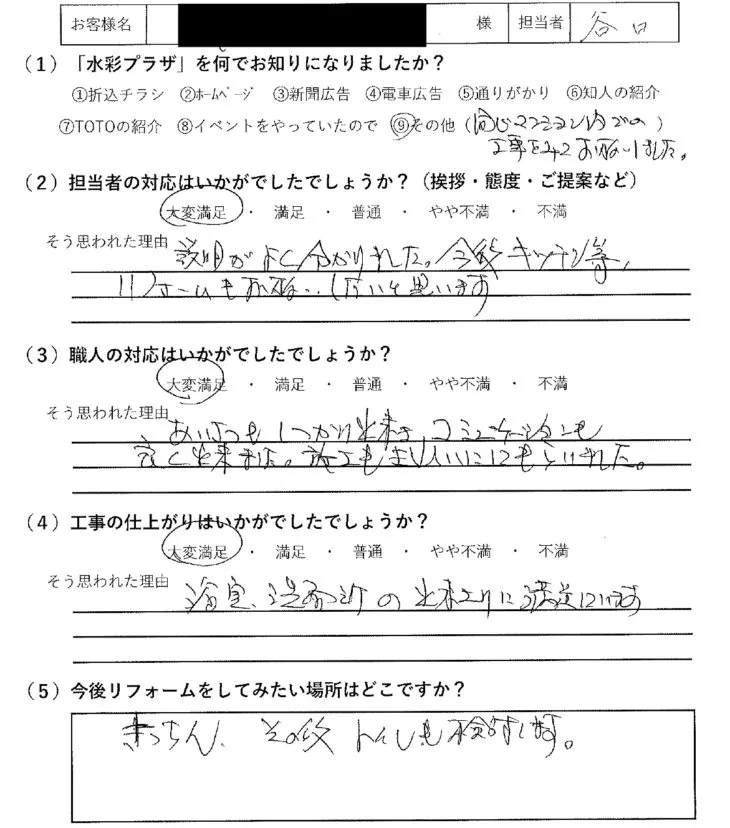 お客様名 様 担当者 谷口
(1)「水彩プラザ」を何でお知りになりましたか?
①折込チラシ ②ホームページ ③新聞広告 ④電車広告 ⑤通りがかり ⑥知人の紹介
⑦TOTOの紹介 ⑧イベントをやっていたので ⑨その他(同じマンション内での)
工事をみてお願いしました。
(2)担当者の対応はいかがでしたでしょうか?(挨拶・態度・ご提案など)
大変満足 ・ 満足 ・ 普通 ・ やや不満 ・ 不満
そう思われた理由 説明がよく分かりました。今後キッチン等、
リフォームもお願いしたいと思います
(3)職人の対応はいかがでしたでしょうか?
大変満足 ・ 満足 ・ 普通 ・ やや不満 ・ 不満
そう思われた理由 あいさつもしっかり出来 コミュニケーションも
良く出来ました。施工もきれいにしてもらいました。
(4)工事の仕上がりはいかがでしたでしょうか?
大変満足 ・ 満足 ・ 普通 ・ やや不満 ・ 不満
そう思われた理由 浴室、洗面所の出来上りに満足しています
(5)今後リフォームをしてみたい場所はどこですか?
きっちん、その後トイレも検討します。